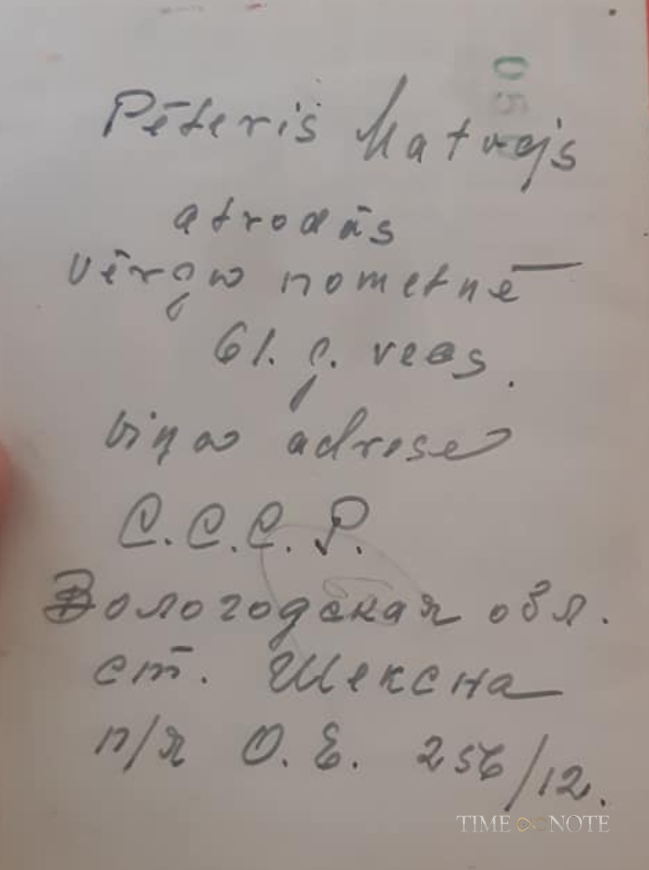 Pēteris Matvejs
atrodās
vērgu nometnē
61. g. vecs.
viņu adrese
С.С.С.Р.
Вологодская обл.
ст. Шексна
п/я О.Е. 256/12.
05
TIME NOTE